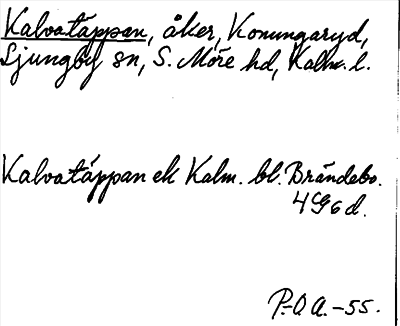 Kalvatäppan, åker, Konungaryd,
Ljungby sn, S. Möre hd, Kalm. l.
Kalvatäppan ek Kalm. bl. Brändebo.
4G6d.
P.-O.A.-55.